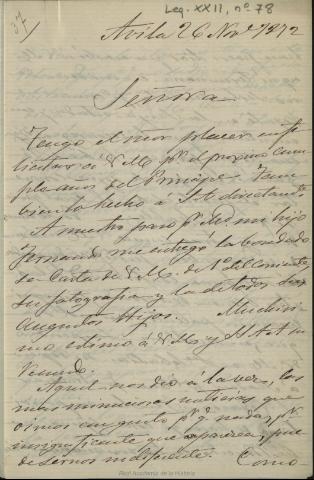 37)
Leg. XXII, nº 78
Avila 26 Nove 1872
Señora
Tengo el mor placer en fe
licitar á V. M. pr el proximo cum
pleaños del Principe. Tam
bien lo hecho á S. A. directamte
A nuestro paso pr Md mi hijo
Fernando me entregó la bondado
sa Carta de V. M. de 1º del Corriente,
su fotografia y la de todos sus
Augustos Hijos. Muchisi
mo estimo á V. M. y SS. AA. su
recuerdo.
Aquel nos dió á la vez, las
mas minuciosas noticias que
oimos con gusto pr q. nada, pr
insignificante que aparezca, pue
de sernos indiferente. Como
Real Academia de la Historia